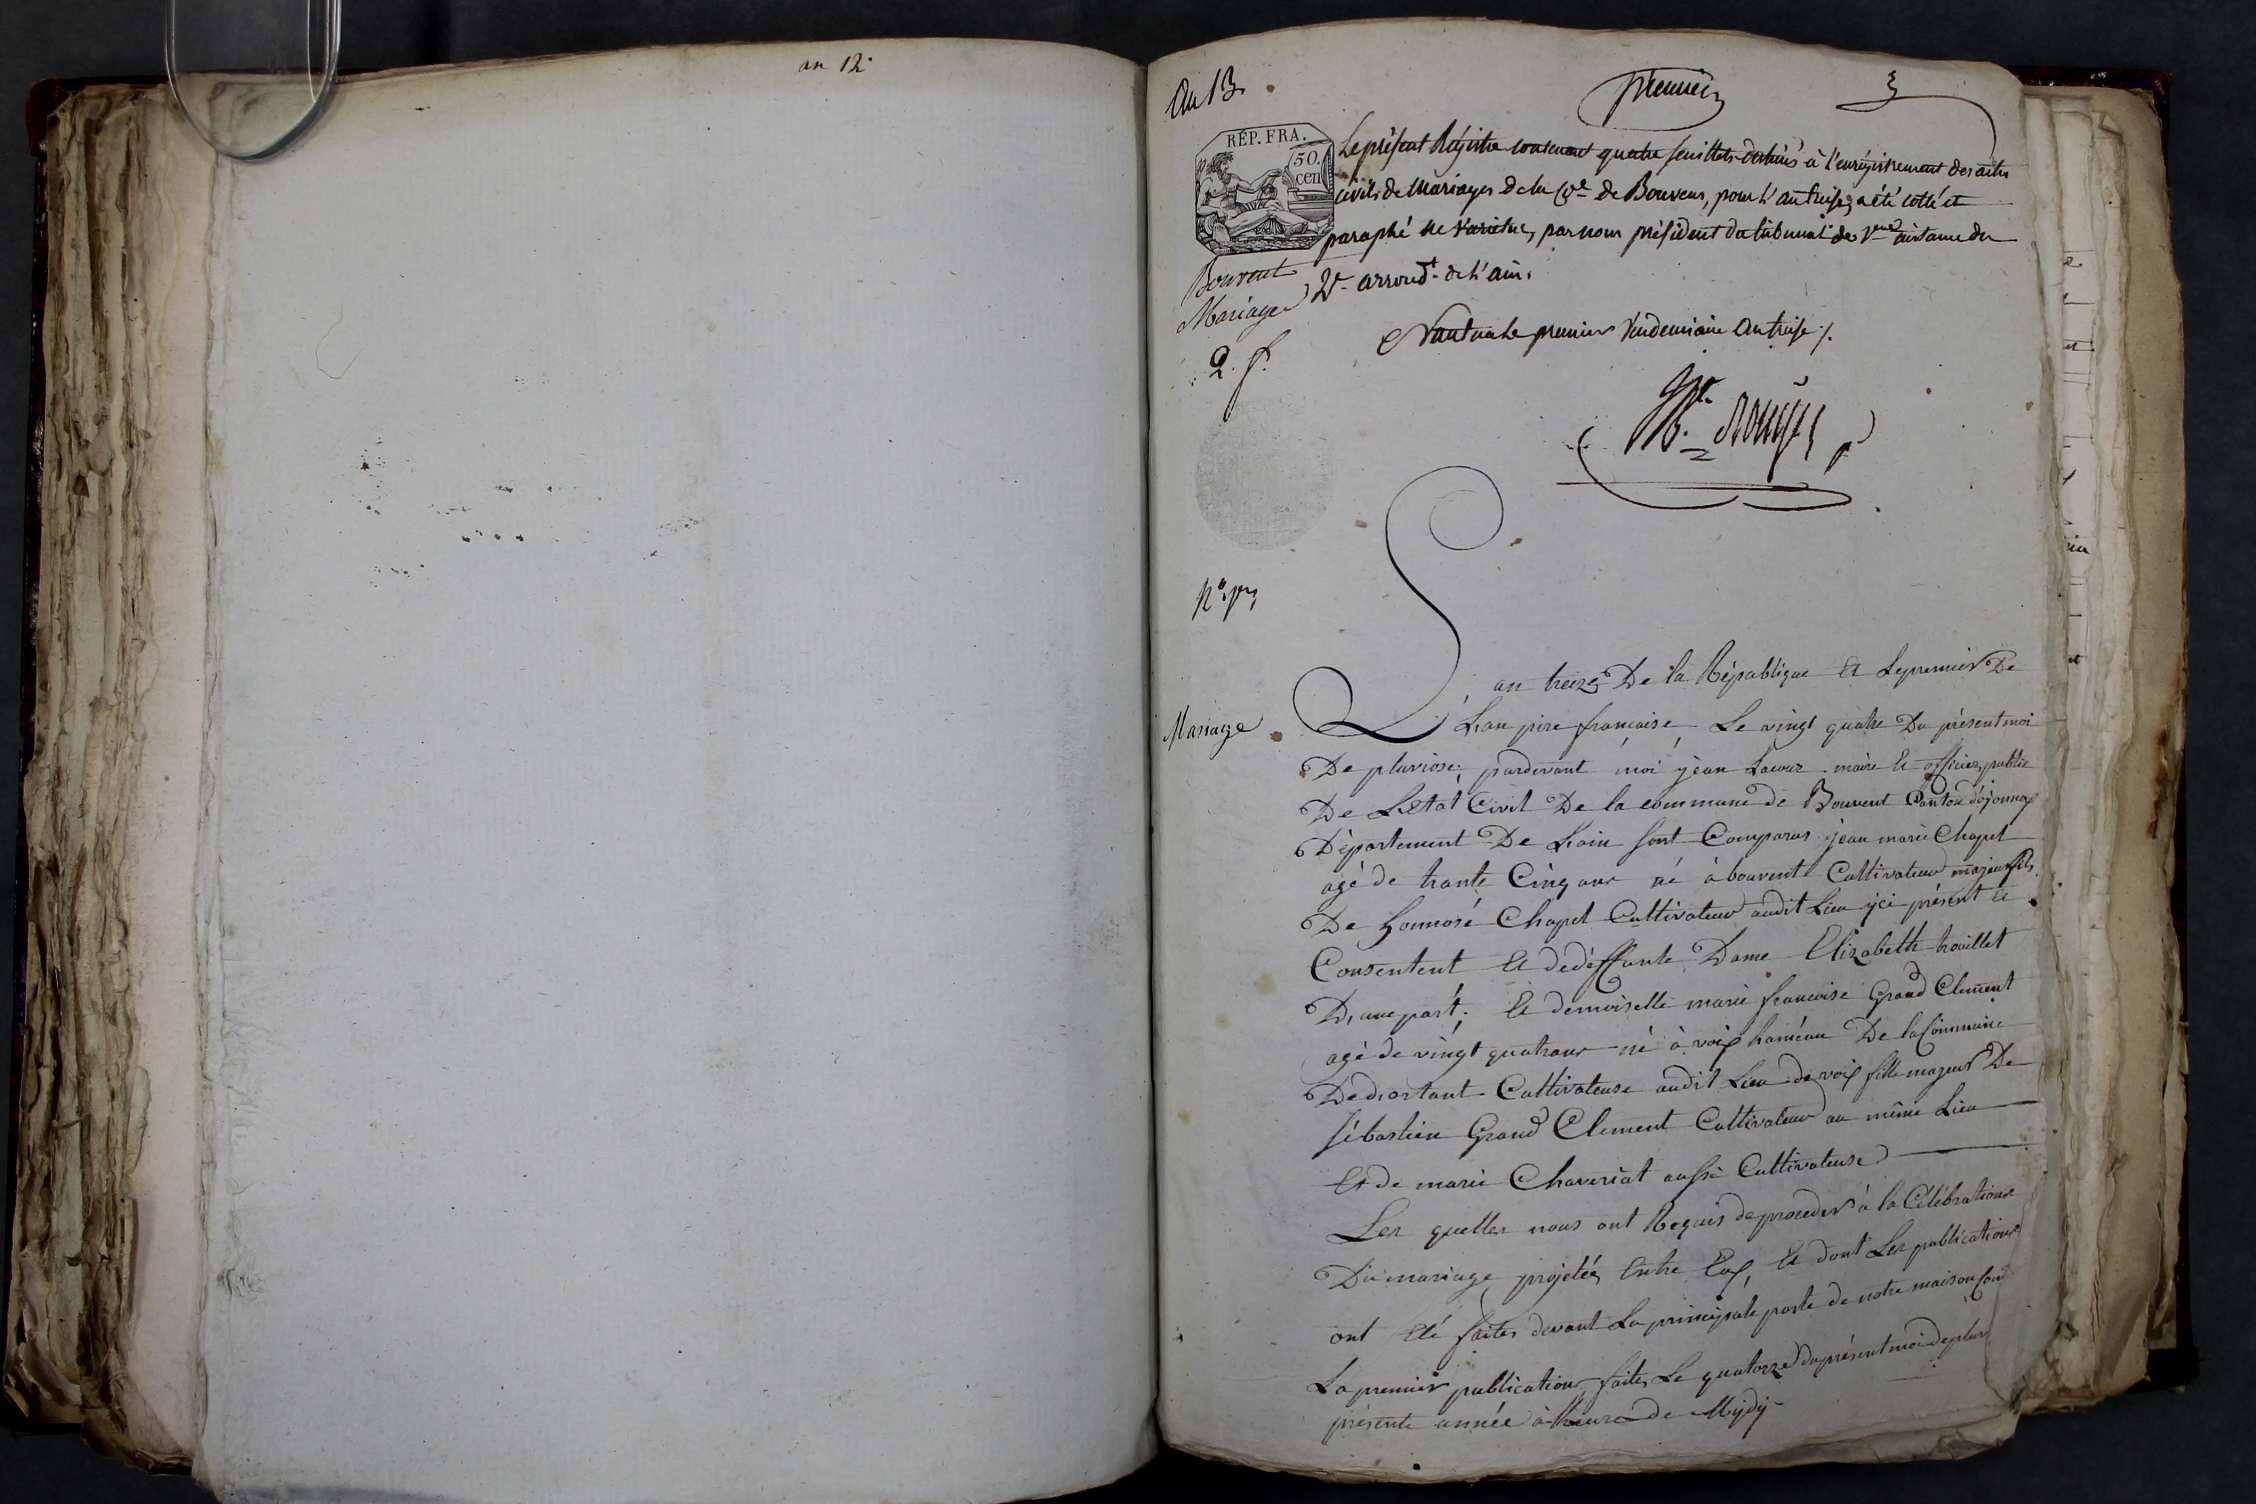 an 12
an 13
premier
3
RÉP. FRA.
50.
cen
Le présent Régistre contenant quatre feuillets destinés à l'enrégistrement des actes
civils de Mariages de la Cne de Bouvens, pour l'an treise, a été cotté et
paraphé ne varietur, par nous président du tribunal de 1ere instance du
2e arrondt de l'ain.
Bouvent
Mariage
2. f.
Nantua le premier Vendemiaire an treise /.
No. per
Mariage
L'an treize De la République Et Le premier De
L'an pire francaise, Le vingt quatre Du présent moi
De pluviose, pardevant moi jean Lacour maire Et officier public
De L'Etat Civil De la commune de Bouvent Canton d'ojonnax
Département De L'ain sont Comparus jean marie Chapel
agé de trante Cinq ans né à bouvent Cultivateur majeur fils
De honnoré Chapel Cultivateur audit Lieu yci présent Et
Consentent Et dedéffunte Dame Elizabeth trouillet
D'une part; Et demoiselle marie francoise Grand Clement
agé de vingt quatrans né à voix haméau De la Commune
De diortant Cultivateuse audit Lieu de voix fille majeur De
sébastien Grand Clement Cultivateur au même Lieu
Et de marie Chaveriat aussi Cultivateuse
Les quelles nous ont Requis de proceder à la Célébration
Du mariage projetée Entre Eux, Et dont Les publications
ont Eté faites devant La principale porte de notre maison Com
La premier publication faites Le quatorze du présent moi de pluv
présente année à Lheure de Mydy